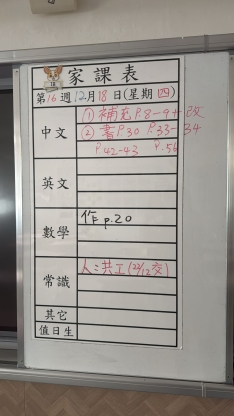 家課表
第16週12月18日(星期四)
中文 ①補充 P.8-9+改
②書P.30 P.33-34
P.42-43 P.56
英文
數學 作 p.20
常識 人:共工(22/12交)
其它
值日生